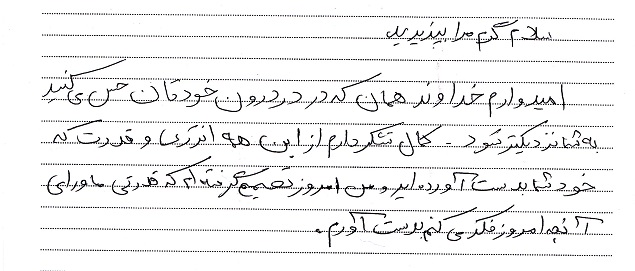 سلام گرم مرا بپذیرید
امیدوارم خداوند همان که در درون خودتان حس می‌کنید
به شما نزدیکتر شود - کمال تشکر دارم از این همه انرژی و قدرت که
خود شما بدست آورده‌اید و من امروز تصمیم گرفته‌ام که قدرتی ماورای
آنچه امروز فکر می‌کنم بدست آورم.